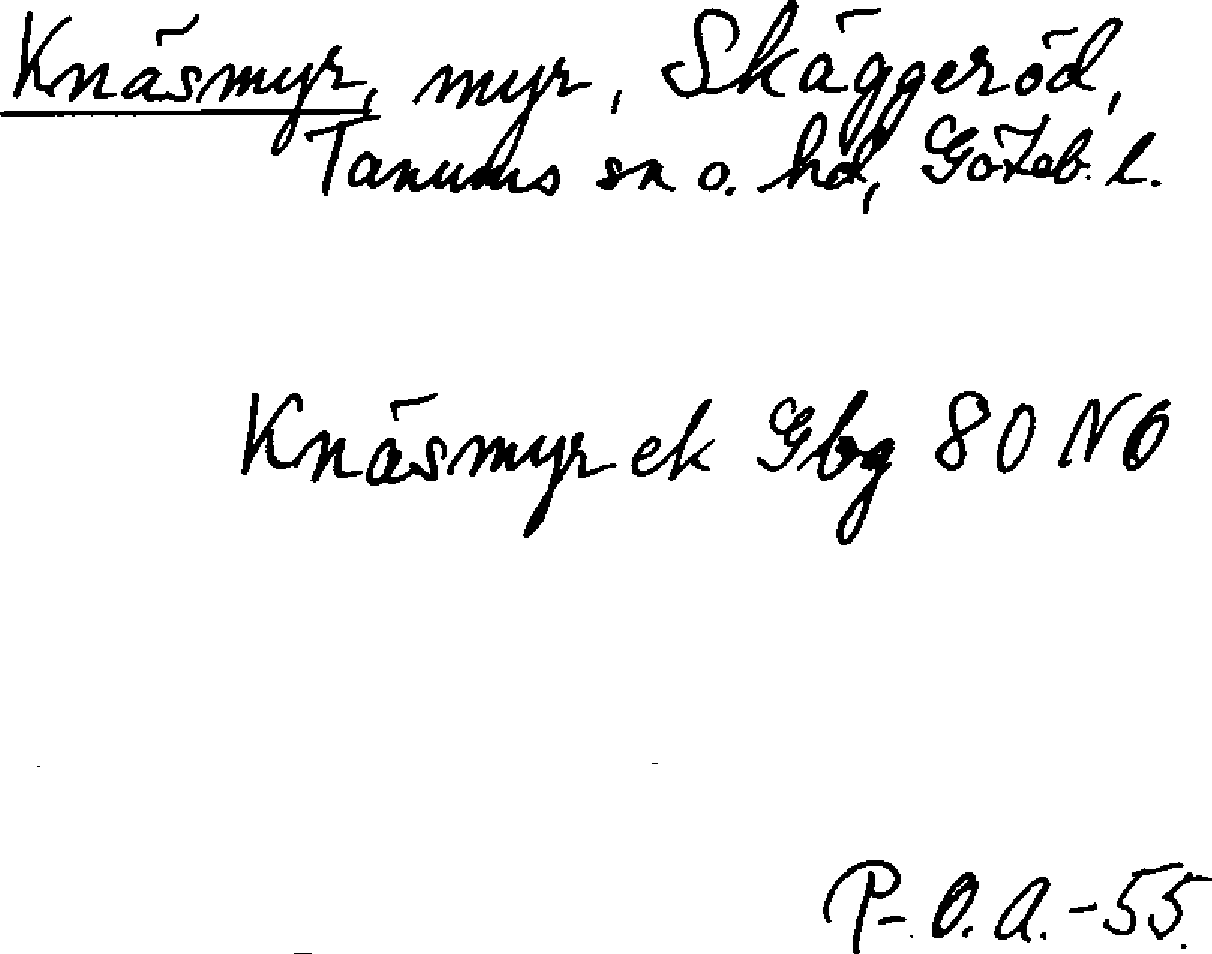 Knäsmyr, myr, Skäggeröd,
Tanums sn o. hd, Göteb. l.
Knäsmyr ek Gbg 80 NO
P-O.A.-55.